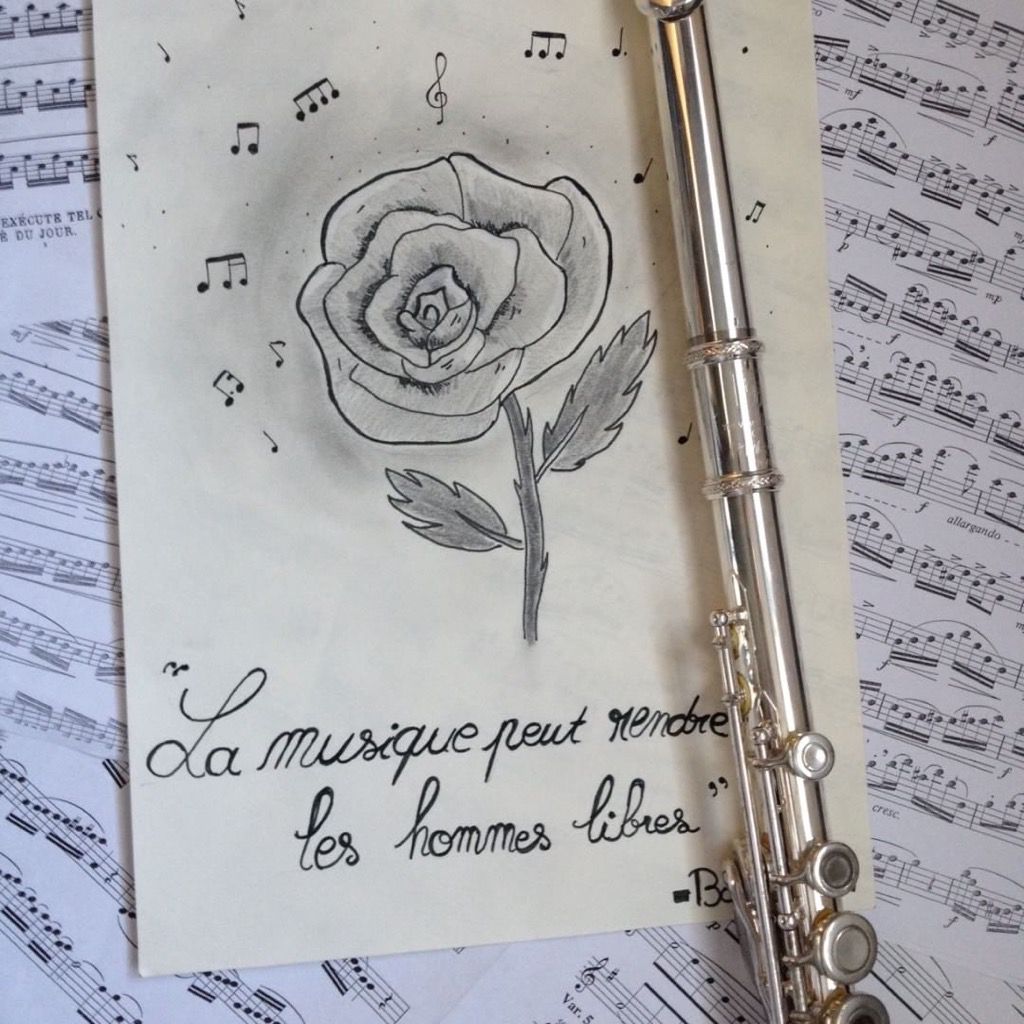 "La musique peut rendre
les hommes libres"
EXÉCUTE TEL
É DU JOUR.
mf
f
f
p
mp
f
f
allargando
f
f
cresc.
f
Var. 5.